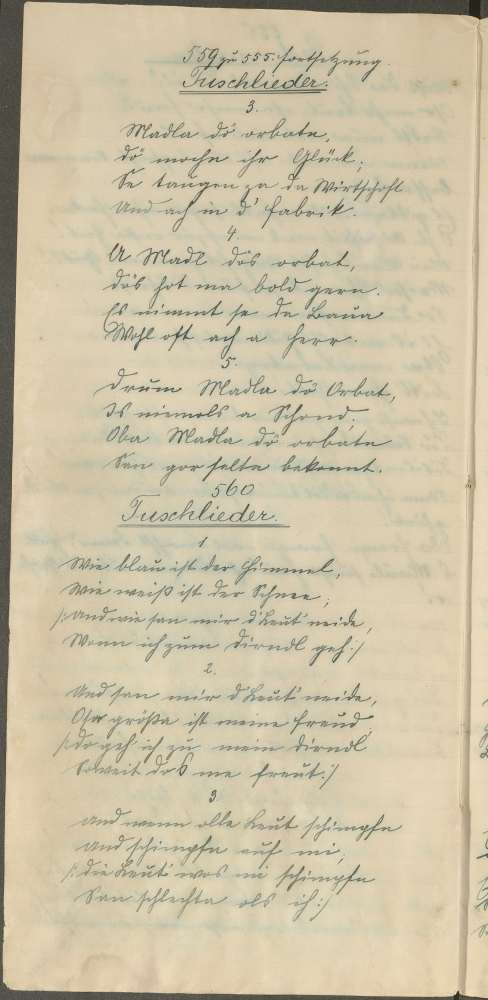 559 zu 555. Fortsetzung.
Tuschlieder.
3.
Madla dö orbatn,
dö mochn ihr Glück;
Se taugen za da Wirtschoft
Und ach in d' Fabrik.
4
A Madl dös orbat,
dös hot ma bold gern.
Es nimmt se da Baua
Wohl oft ach a Herr.
5.
Drum Madla dö Orbat,
Is niemols a Schond;
Oba Madla dö orbatn
San gor seltn bekonnt.
560
Tuschlieder.
1
Wie blau ist der Himmel,
wie weiß ist der Schnee;
/: und wie san mir d'Leut' neide,
Wenn ich zum Dirndl geh :/
2.
Und san mir d'Leut' neide,
größa ist meine Freud,
/: do geh' ich zu mein Dirndl
Soweit dos me freut :/
3
und wenn olle Leut schimpfn
und schimpfn auf mi,
/: die Leut' wos mi schimpfn
San schlechta ols ich :/